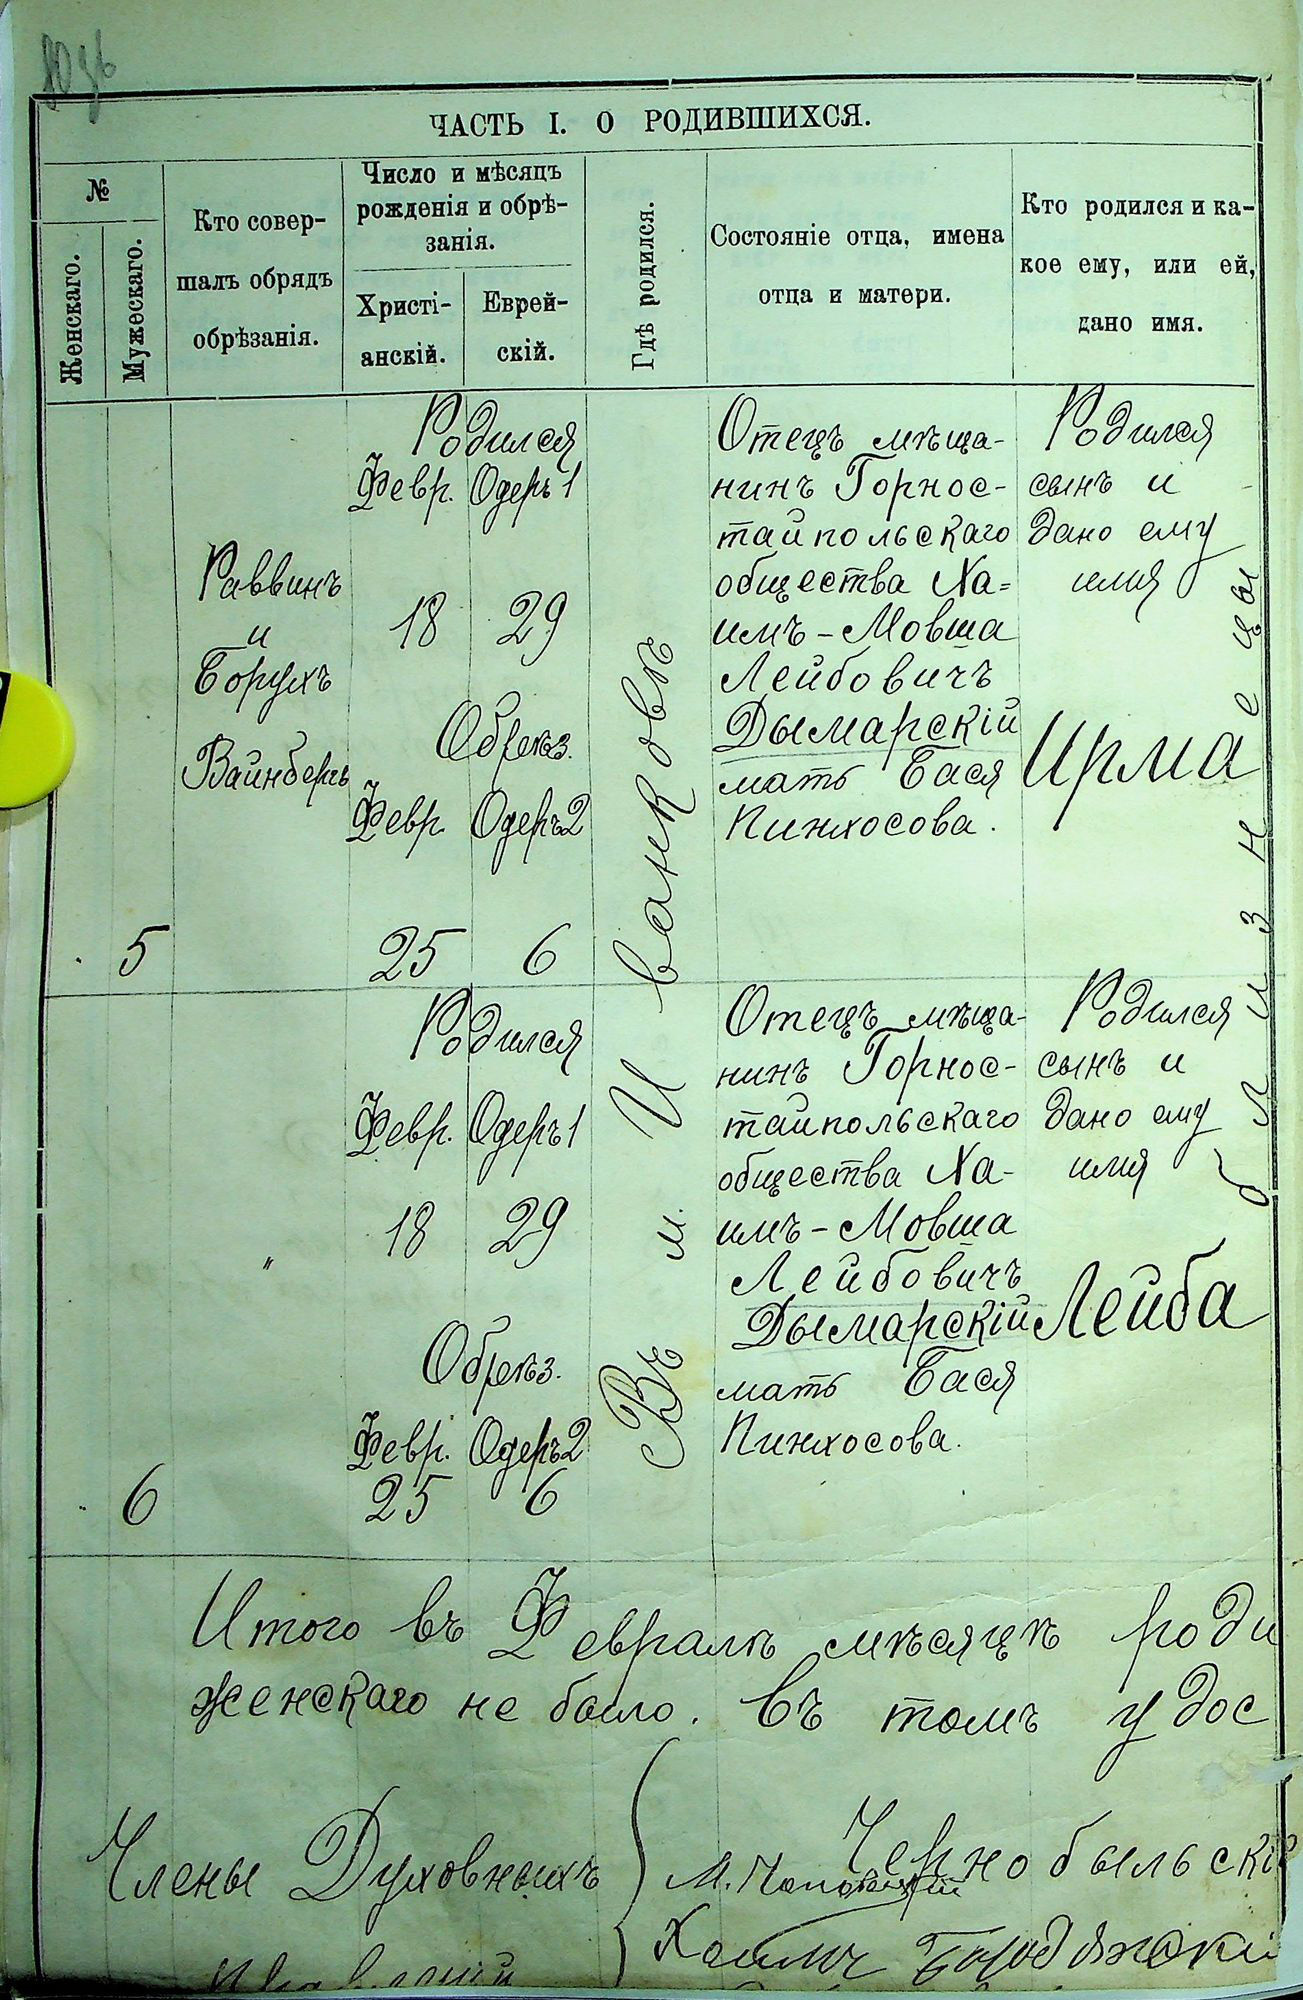 ЧАСТЬ I. О РОДИВШИХСЯ.
№
Женскаго.
Мужескаго.
Кто совер-
шалъ обрядъ
обрѣзанія.
Число и мѣсяцъ
рожденія и обрѣ-
занія.
Христі-
анскій.
Еврей-
скій.
Гдѣ родился.
Состояніе отца, имена
отца и матери.
Кто родился и ка-
кое ему, или ей,
дано имя.
5
Раввинъ
и
Борухъ
Вайнбергъ
Родился
Февр. Одеръ 1
18 29
Обрѣз.
Февр. Одеръ 2
25 6
Въ м. Иванковѣ
Отецъ мѣща-
нинъ Горнос-
тайпольскаго
общества Ха-
имъ-Мовша
Лейбовичъ
Дымарскій
мать Бася
Пинхосова.
Родился
сынъ и
дано ему
имя
Ирма
близнецы
6
"
Родился
Февр. Одеръ 1
18 29
Обрѣз.
Февр. Одеръ 2
25 6
Отецъ мѣща-
нинъ Горнос-
тайпольскаго
общества Ха-
имъ-Мовша
Лейбовичъ
Дымарскій
мать Бася
Пинхосова.
Родился
сынъ и
дано ему
имя
Лейба
Итого въ Февралѣ мѣсяцѣ роди
женскаго не было. Въ томъ удос
Чернобыльскі
Члены Духовныхъ